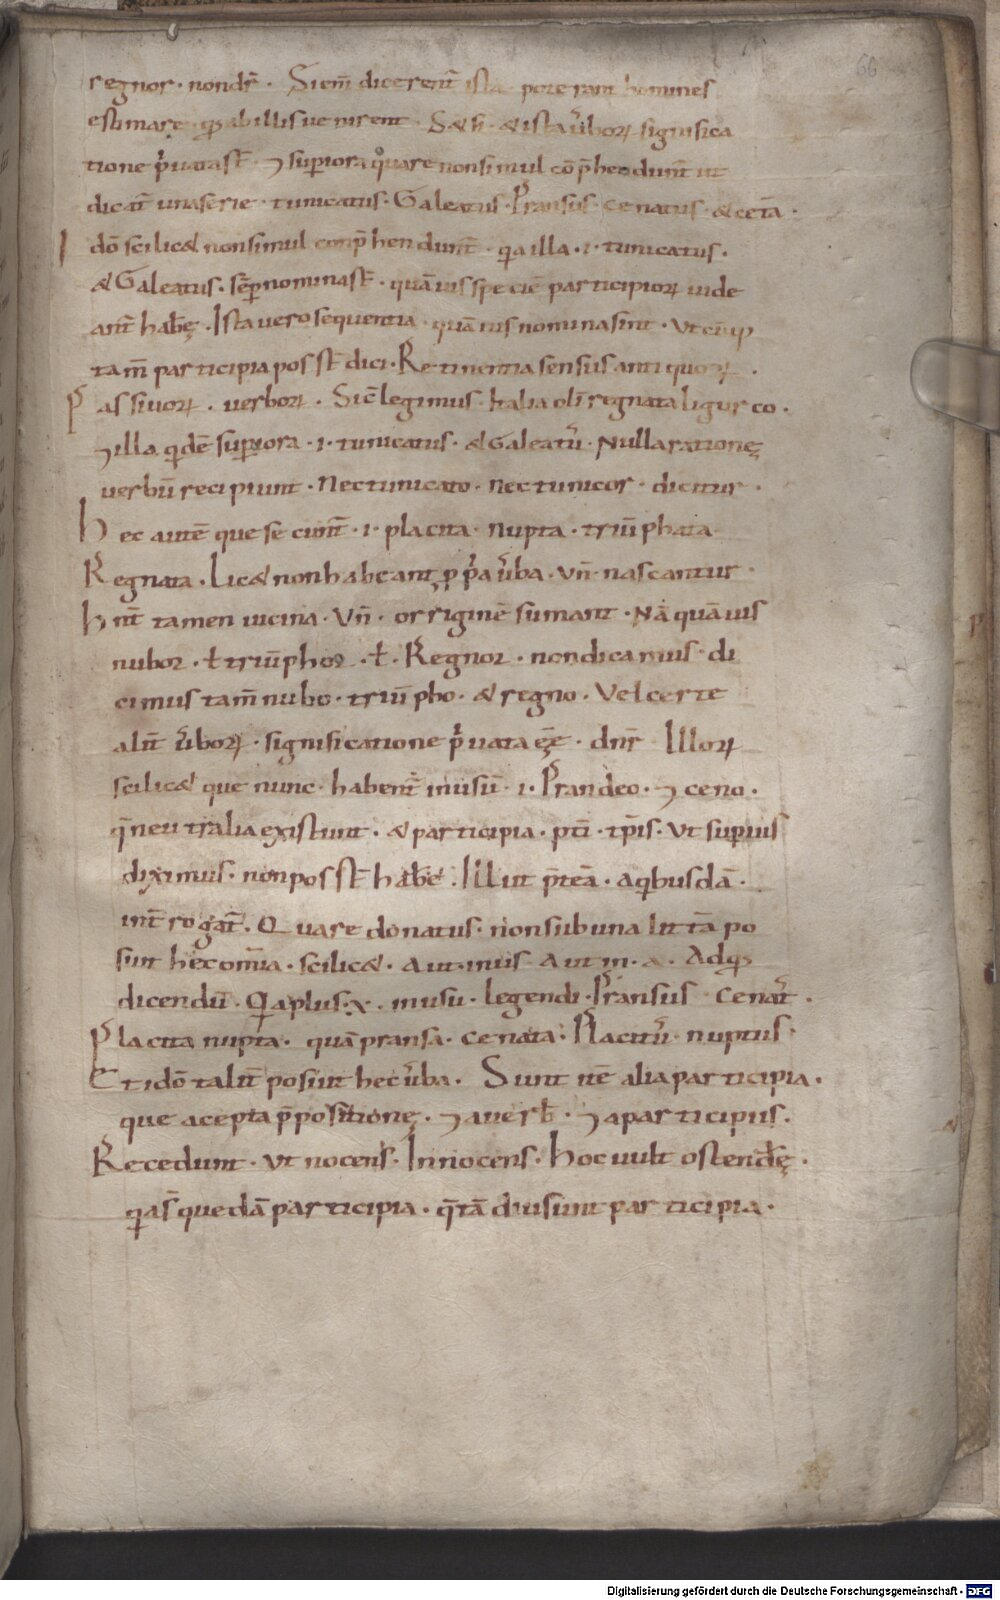 66
regnor · nondr̄ · Siem̄ dicerent̄ ista poterant homines
estimare · qđ abillis uenirent · S& si · & ista ūborꝝ significa
tione p̄uatast̄ · ⁊ superiora quare nonsimul cōp̄hendunt̄ ut
dicat̄ unaserie · tunicatus · Galeatus · Pransus · cenatus · & cet̄a ·
I dō scilic& nonsimul conp̄hendunt̄ · q̄a illa · i · tunicatus ·
& Galeatus · sēp nominast̄ · quāuis speciē participiorꝝ uide
ant̄ habēę · Ista uero sequentia · quāuis nomina sint · Ut cūq
tam̄ participia posst̄ dici · Retinentia sensus antiquorꝝ ·
P assiuorꝝ · verborꝝ · Sic̄ legimus · Italia olī regnata ligur co ·
⁊ illa qidē superiora · i · tunicatus · & Galeatū · Nulla rationeę
verbū recipiunt · Nec tunicato · nec tunicor · dicitur ·
h ec autē que secunt̄ · i · placita · nupta · triūphata
R egnata · Lic& non habeant p̱ p̄a ūba · vn̄ · nascantur ·
h nt̄ tamen uicina · Vn̄ · orriginē sumant · Nā quāuis
nubor · ł triūphor · ł · Regnor · nondicamus · di
cimus tam̄ nubo · triūpho · & regno · Vel certe
aliī ūborꝝ · significatione p̄uata eē · dnr̄ Illorꝝ
scilic& que nunc · habent̄ inusū · i · Prandeo · ⁊ ceno ·
q̄ neutralia existunt · & participia · pt̄i · tp̄is · Ut superius
diximus · non posst̄ habē& · Illut p̄teā · aqibusdā ·
int̄rogat̄ · Quare donatus · non sub una littā po
suit hec om̄ia · scilic& · Aut in us · Aut in · a · Adqđ
dicendū · Q̄a plus · x · inusu · legendi · Pransus · Cenat̄ ·
Placita nupta · quā pransa · cenata · Placitū · nuptus ·
Et idō taliī posuit hec ūba · Sunt nē alia participia ·
que acepta p̄positioneę · ⁊ averƀ · ⁊ aparticipiis ·
Recedunt · ut nocens · Innocens · hoc uult ostendēę ·
q̄as̄ quedā participia · q̄tā diuisiunt participia ·
Digitalisierung gefördert durch die Deutsche Forschungsgemeinschaft - DFG